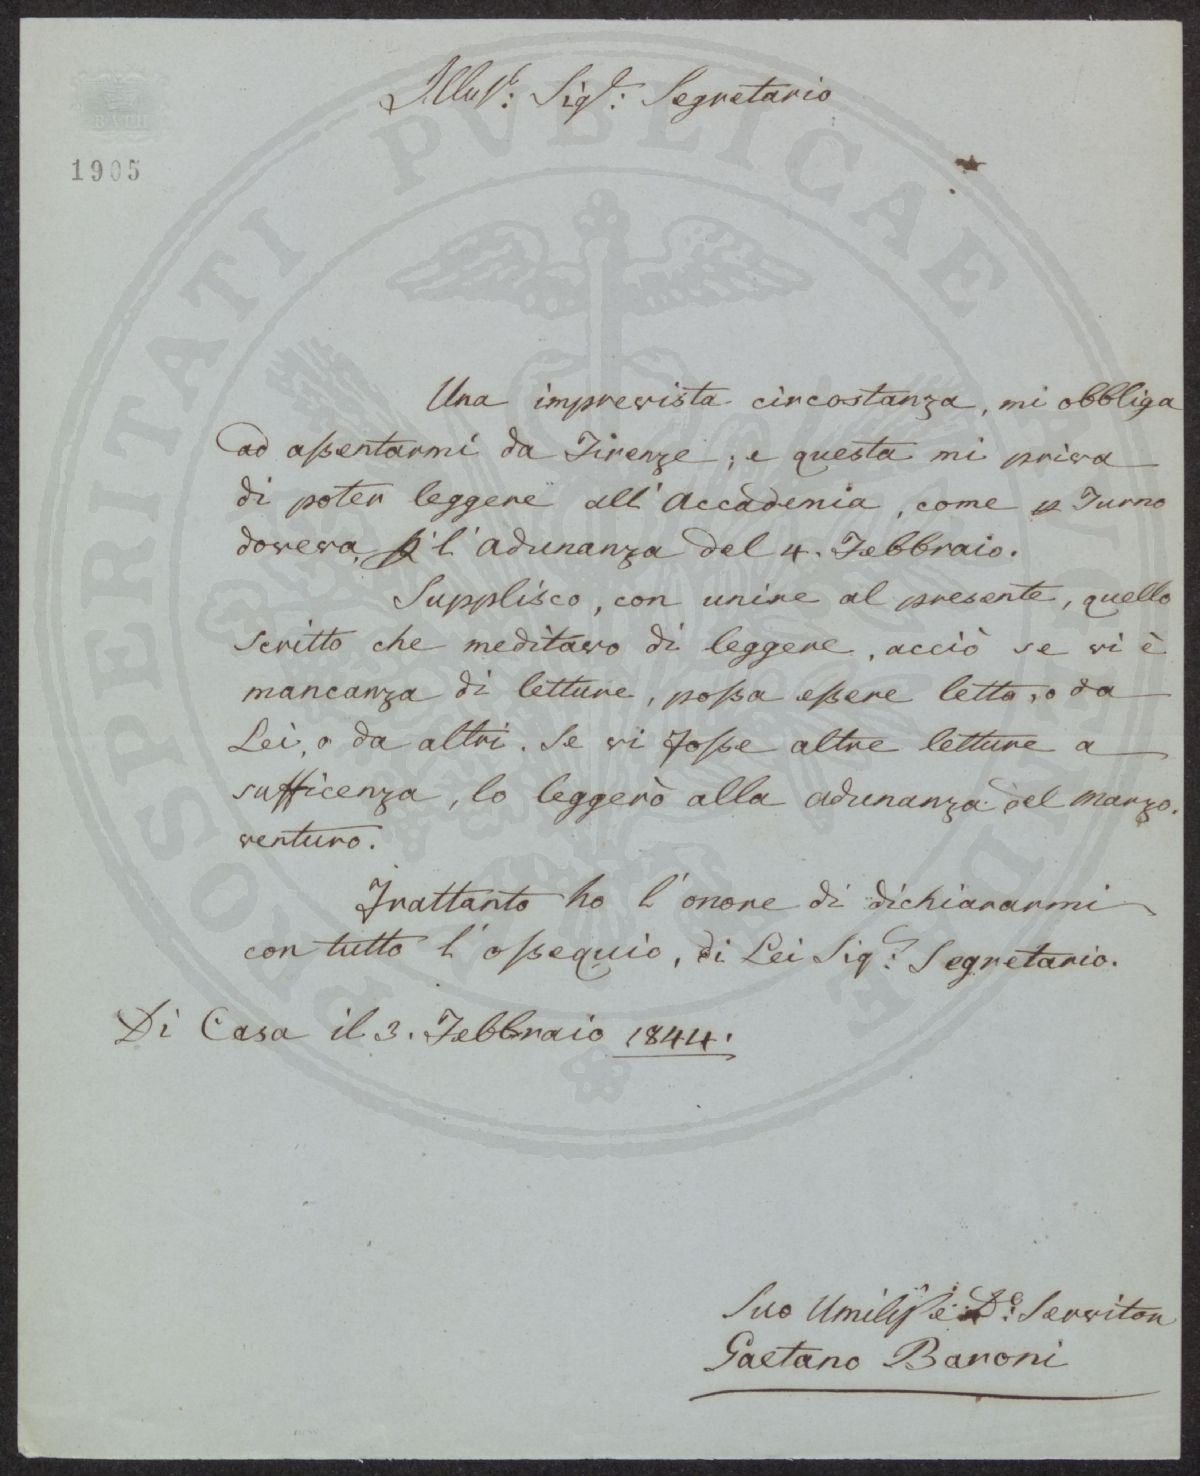 BATH
1905
Illus.e: Sig.e: Segretario
Una imprevista circostanza, mi obbliga
ad assentarmi da Firenze; e questa mi priva
di poter leggere all'Accademia, come p Turno
doveva, p l'adunanza del 4. Febbraio.
Supplisco, con unire al presente, quello
scritto che meditavo di leggere, acciò se vi è
mancanza di letture, possa essere letto, o da
Lei, o da altri. Se vi fosse altre letture a
sufficenza, lo leggerò alla adunanza del Marzo.
venturo.
Frattanto ho l'onore di dichiararmi
con tutto l'ossequio, di Lei Sig.e: Segretario.
Di Casa il 3. Febbraio 1844.
Suo Umiliss.e D.e: Servitor
Gaetano Baroni
PROSPERITATI PVBLICAE AVGENDAE